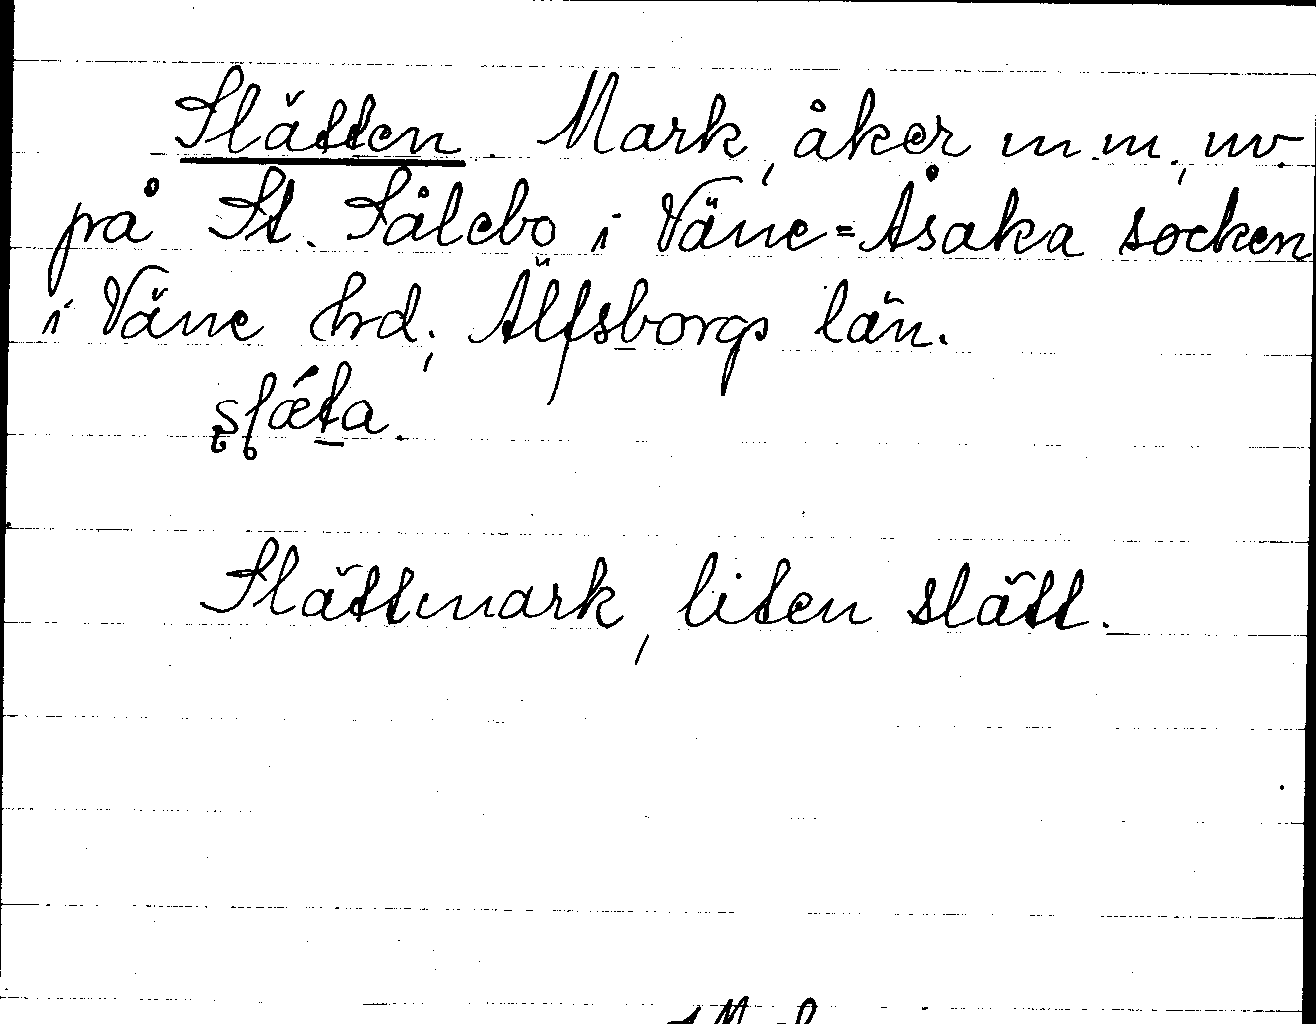 Slätten. Mark, åker m.m., nv.
på St. Sålebo i Väne=Åsaka socken
i Väne hrd; Älfsborgs län.
slǽta.
Slättmark, liten slätt.